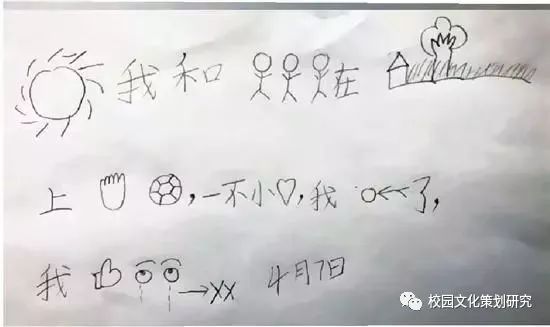 我和在
上,一不小,我了,
我xx 4月7日
校园文化策划研究